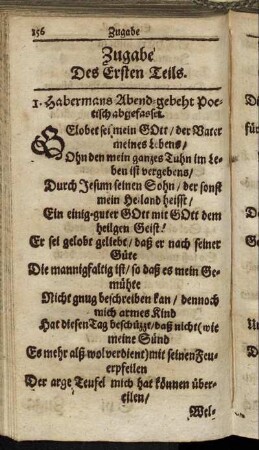 156 Zugabe
Zugabe
Des Ersten Teils.
1. Habermans Abend-gebeht Poe-
tisch abgefasset.
GElobet sei mein GOtt / der Vater
meines Lebens /
Ohn den mein ganzes Tuhn im Le-
ben ist vergebens /
Durch Jesum seinen Sohn / der sonst
mein Heiland heisst /
Ein einig-guter GOtt mit GOtt dem
heilgen Geist!
Er sei gelobt geliebt / daß er nach seiner
Güte
Die mannigfaltig ist / so daß es mein Ge-
mühte
Nicht gnug beschreiben kan / dennoch
mich armes Kind
Hat diesen Tag beschüzzt / daß nicht (wie
meine Sünd
Es mehr alß wol verdient) mit seinen Feu-
erpfeilen
Der arge Teufel mich hat können über-
eilen /
Wel-